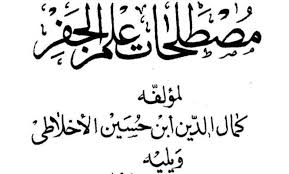 مصطلحات علم الجفر
لمؤلفه
كمال الدين ابن حسين الأخلاطي
ويليه